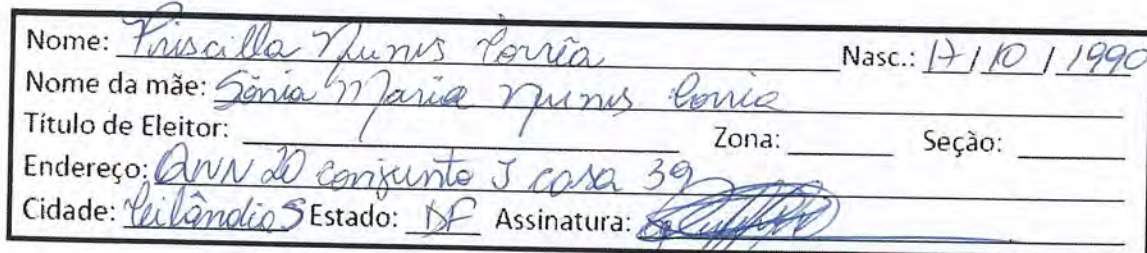 Nome: Priscilla Nunes Corrêa Nasc.: 17/10/1990
Nome da mãe: Sônia Maria Nunes Corrêa
Título de Eleitor: Zona: Seção:
Endereço: QNN 20 conjunto J casa 39
Cidade: Ceilândia S Estado: DF Assinatura: